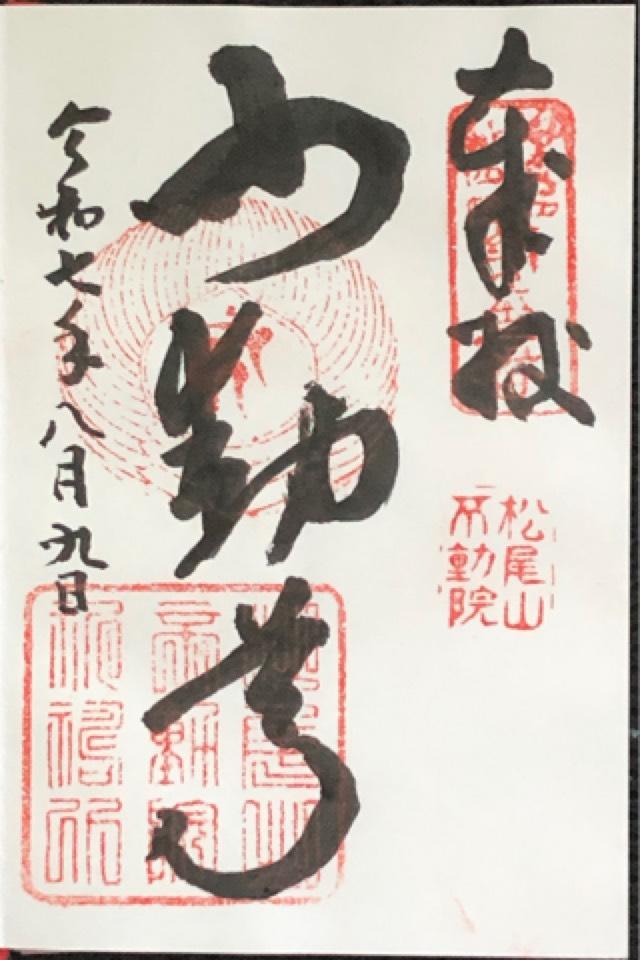 奉拝
松尾山
不動院
不動尊
松尾山
不動院
祈祷所
令和七年八月九日